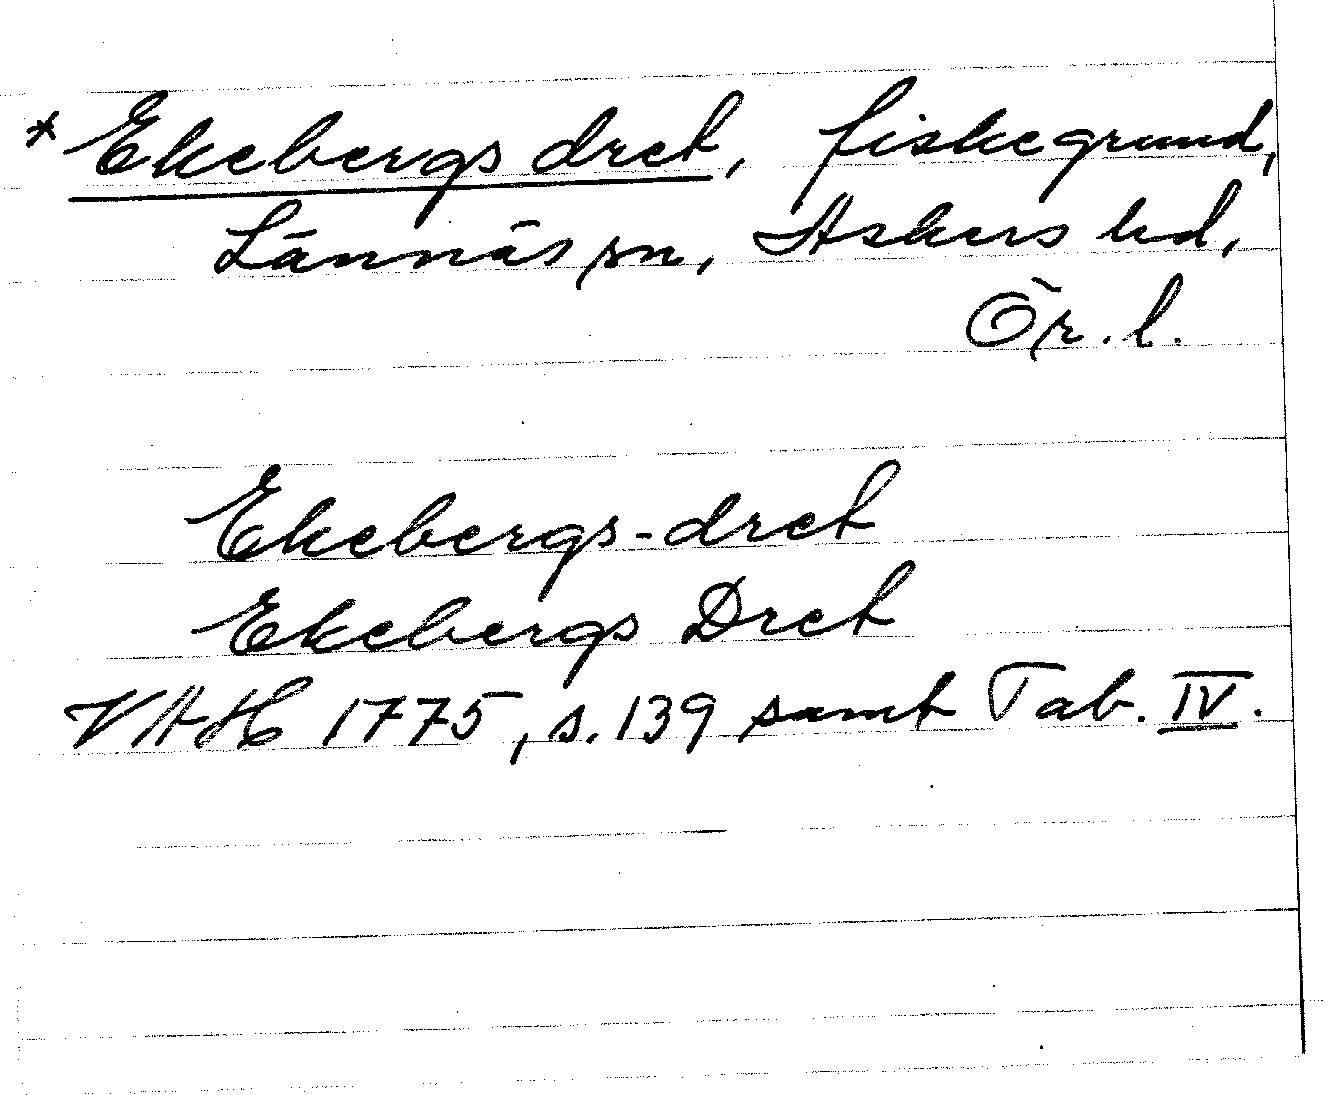 * Ekebergs dret, fiskegrund,
Lännäs sn, Askers hd,
Ör. l.
Ekebergs-dret
Ekebergs Dret
VAH 1775, s. 139 samt Tab. IV.